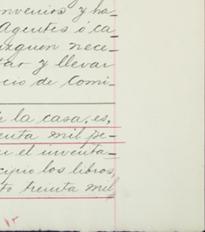 nvenios y ha-
Agentes ó ca
uzguen nece-
tar y llevar
cio de Comi-
e la casa, es,
enta mil pe-
n el inventa-
cipio los libros
to treinta mil